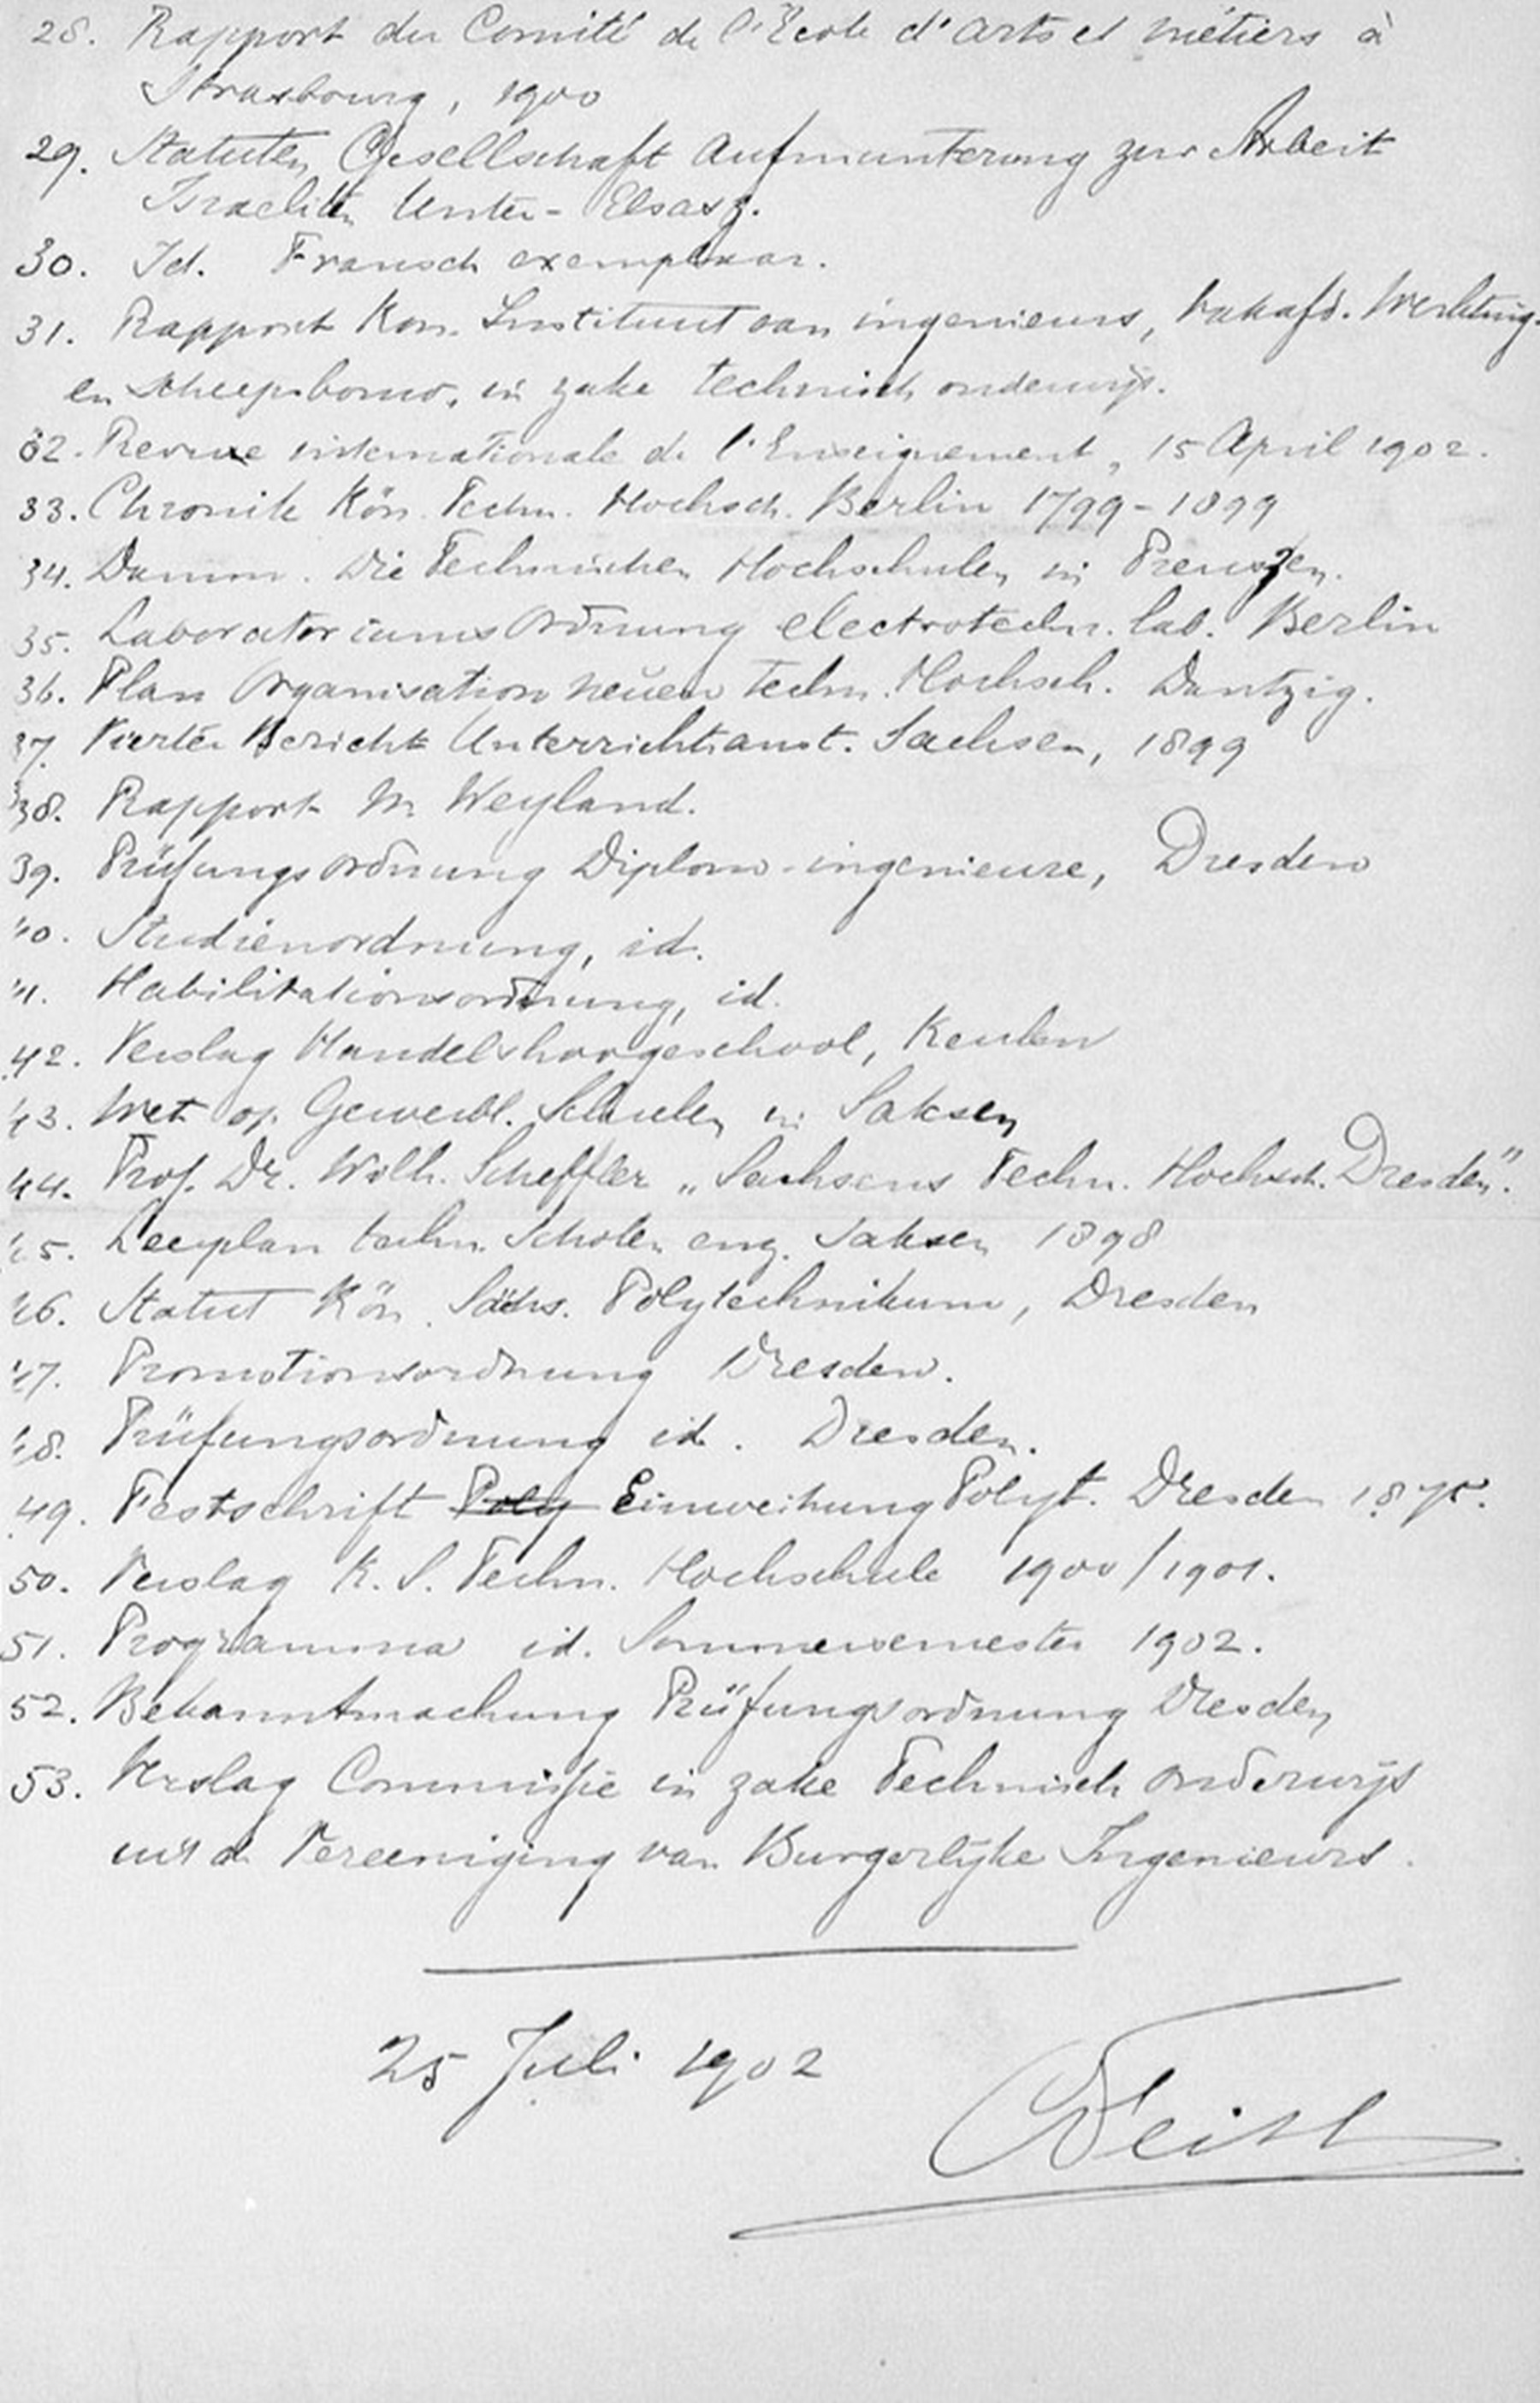 28. Rapport du Comité de l'École d'Arts et métiers à
Strasbourg, 1900
29. Statuten Gesellschaft Aufmunterung zur Arbeit
Israeliten Unter-Elsasz.
30. Id. Fransch exemplaar.
31. Rapport Kon. Instituut van ingenieurs, Vakafd. Werktuig-
en Scheepsbouw, in zake technisch onderwijs.
32. Revue internationale de l'Enseignement, 15 April 1902.
33. Chronik Kön. Techn. Hochsch. Berlin 1799-1899
34. Damm. Die Technischen Hochschulen in Preuszen.
35. Laboratoriums Ordnung electrotechn. lab. Berlin
36. Plan Organisation neuen Techn. Hochsch. Dantzig.
37. Vierter Bericht Unterrichtsanst. Sachsen, 1899
38. Rapport M. Weyland.
39. Prüfungsordnung Diplom-ingenieure, Dresden
40. Studienordnung, id.
41. Habilitationsordnung, id.
42. Verslag Handelshoogeschool, Keulen
43. Wet op Gewerbl. Schulen in Saksen
44. Prof. Dr. Wilh. Scheffler „Sachsens Techn. Hochsch. Dresden".
45. Leerplan techn. Scholen enz. Saksen 1898
46. Statut Kön. Sächs. Polytechnikum, Dresden
47. Promotionsordnung Dresden.
48. Prüfungsordnung id. Dresden.
49. Festschrift Poly Einweihung Polyt. Dresden 1875.
50. Verslag K. S. Techn. Hochschule 1900/1901.
51. Programma id. Sommersemester 1902.
52. Bekanntmachung Prüfungsordnung Dresden
53. Verslag Commissie in zake Technisch onderwijs
uit de Vereeniging van Burgerlijke Ingenieurs.
25 Juli 1902